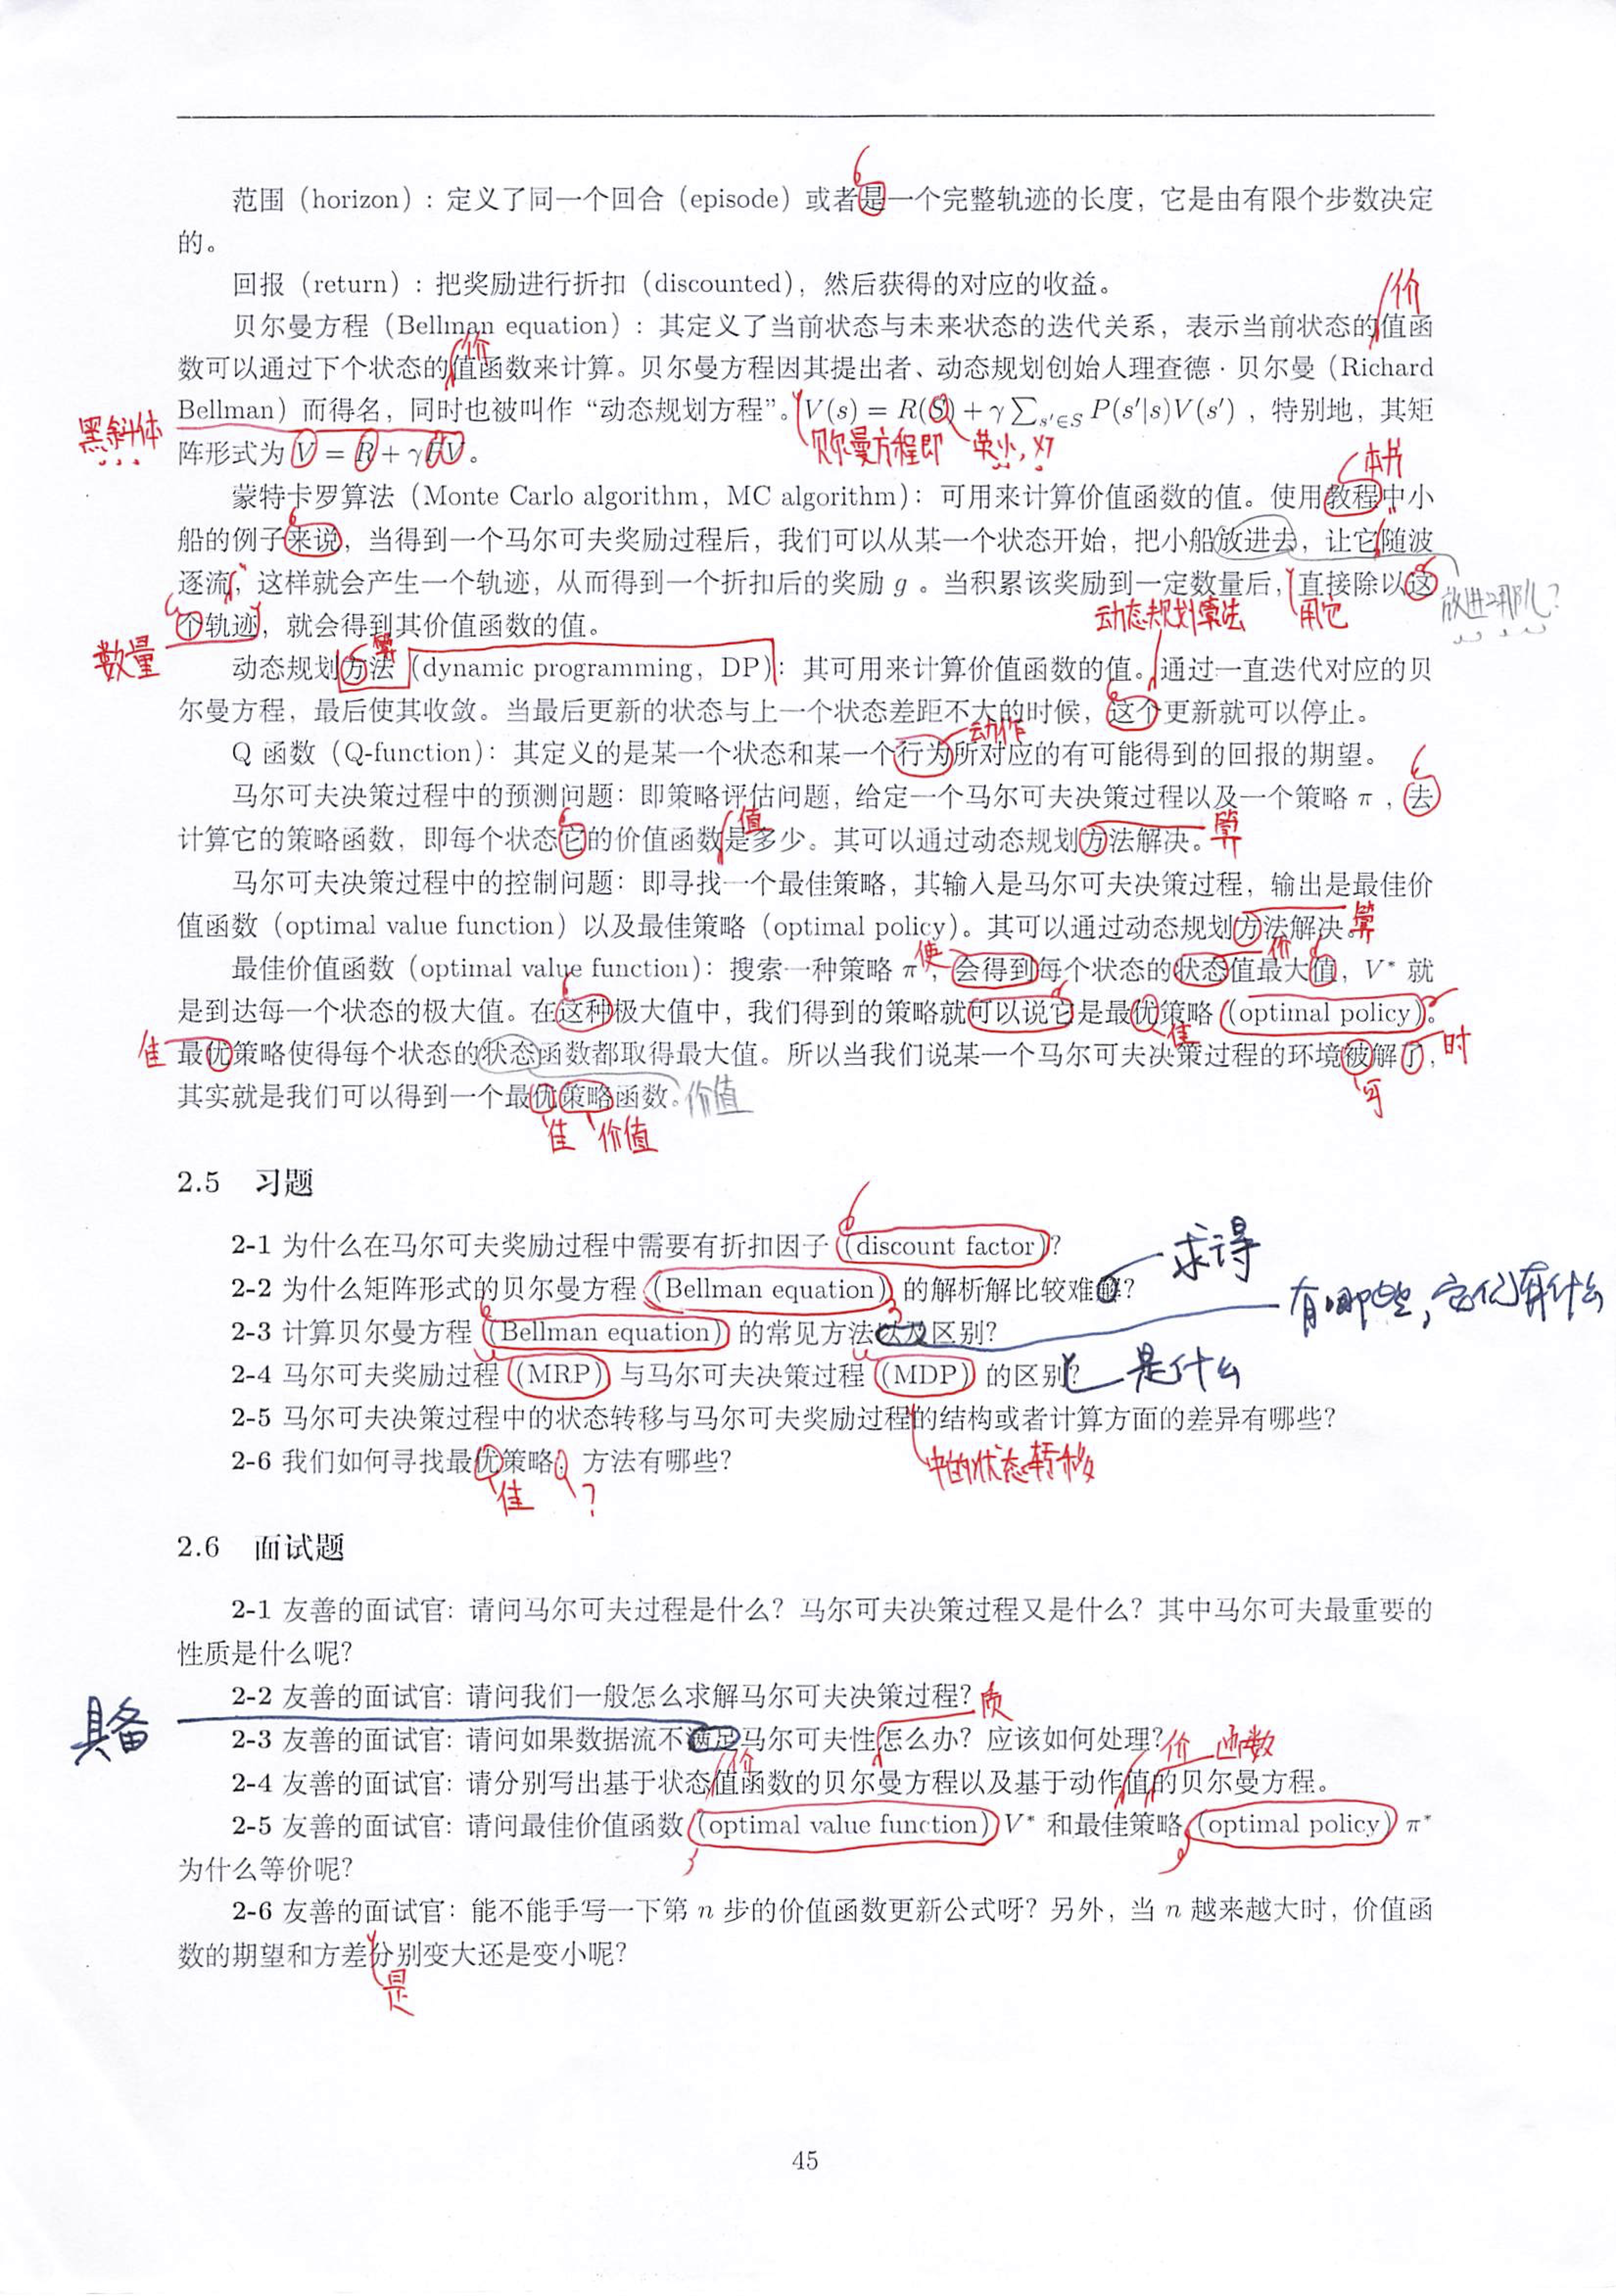 范围（horizon）：定义了同一个回合（episode）或者是一个完整轨迹的长度，它是由有限个步数决定
的。
回报（return）：把奖励进行折扣（discounted），然后获得的对应的收益。
价
贝尔曼方程（Bellman equation）：其定义了当前状态与未来状态的迭代关系，表示当前状态的值函
价
数可以通过下个状态的值函数来计算。贝尔曼方程因其提出者、动态规划创始人理查德·贝尔曼（Richard
Bellman）而得名，同时也被叫作“动态规划方程”。V(s) = R(S) + γ∑s'∈S P(s'|s)V(s')，特别地，其矩
黑斜体
贝尔曼方程即 英小，对
阵形式为 V = R + γPV。
本书
蒙特卡罗算法（Monte Carlo algorithm，MC algorithm）：可用来计算价值函数的值。使用教程中小
船的例子来说，当得到一个马尔可夫奖励过程后，我们可以从某一个状态开始，把小船放进去，让它随波
逐流，这样就会产生一个轨迹，从而得到一个折扣后的奖励 g 。当积累该奖励到一定数量后，直接除以这
放进哪儿？
用它
动态规划算法
个轨迹，就会得到其价值函数的值。
数量
算
动态规划方法（dynamic programming，DP）：其可用来计算价值函数的值。通过一直迭代对应的贝
尔曼方程，最后使其收敛。当最后更新的状态与上一个状态差距不大的时候，这个更新就可以停止。
动作
Q 函数（Q-function）：其定义的是某一个状态和某一个行为所对应的有可能得到的回报的期望。
马尔可夫决策过程中的预测问题：即策略评估问题，给定一个马尔可夫决策过程以及一个策略 π ，去
值
计算它的策略函数，即每个状态它的价值函数是多少。其可以通过动态规划方法解决。
算
马尔可夫决策过程中的控制问题：即寻找一个最佳策略，其输入是马尔可夫决策过程，输出是最佳价
值函数（optimal value function）以及最佳策略（optimal policy）。其可以通过动态规划方法解决。
算
使
价
最佳价值函数（optimal value function）：搜索一种策略 π ，会得到每个状态的状态值最大值，V* 就
是到达每一个状态的极大值。在这种极大值中，我们得到的策略就可以说它是最优策略（optimal policy）。
佳
佳
时
最优策略使得每个状态的状态函数都取得最大值。所以当我们说某一个马尔可夫决策过程的环境被解了，
可
其实就是我们可以得到一个最优策略函数。
价值
佳 价值
2.5 习题
2-1 为什么在马尔可夫奖励过程中需要有折扣因子（discount factor）？
求得
2-2 为什么矩阵形式的贝尔曼方程（Bellman equation）的解析解比较难解？
有哪些，它们有什么
2-3 计算贝尔曼方程（Bellman equation）的常见方法以及区别？
2-4 马尔可夫奖励过程（MRP）与马尔可夫决策过程（MDP）的区别？
是什么
2-5 马尔可夫决策过程中的状态转移与马尔可夫奖励过程的结构或者计算方面的差异有哪些？
中的状态转移
2-6 我们如何寻找最优策略，方法有哪些？
佳 ？
2.6 面试题
2-1 友善的面试官：请问马尔可夫过程是什么？马尔可夫决策过程又是什么？其中马尔可夫最重要的
性质是什么呢？
2-2 友善的面试官：请问我们一般怎么求解马尔可夫决策过程？
具备
质
2-3 友善的面试官：请问如果数据流不满足马尔可夫性怎么办？应该如何处理？
价
价 函数
2-4 友善的面试官：请分别写出基于状态值函数的贝尔曼方程以及基于动作值的贝尔曼方程。
2-5 友善的面试官：请问最佳价值函数（optimal value function）V* 和最佳策略（optimal policy）π*
为什么等价呢？
2-6 友善的面试官：能不能手写一下第 n 步的价值函数更新公式呀？另外，当 n 越来越大时，价值函
数的期望和方差分别变大还是变小呢？
是
45